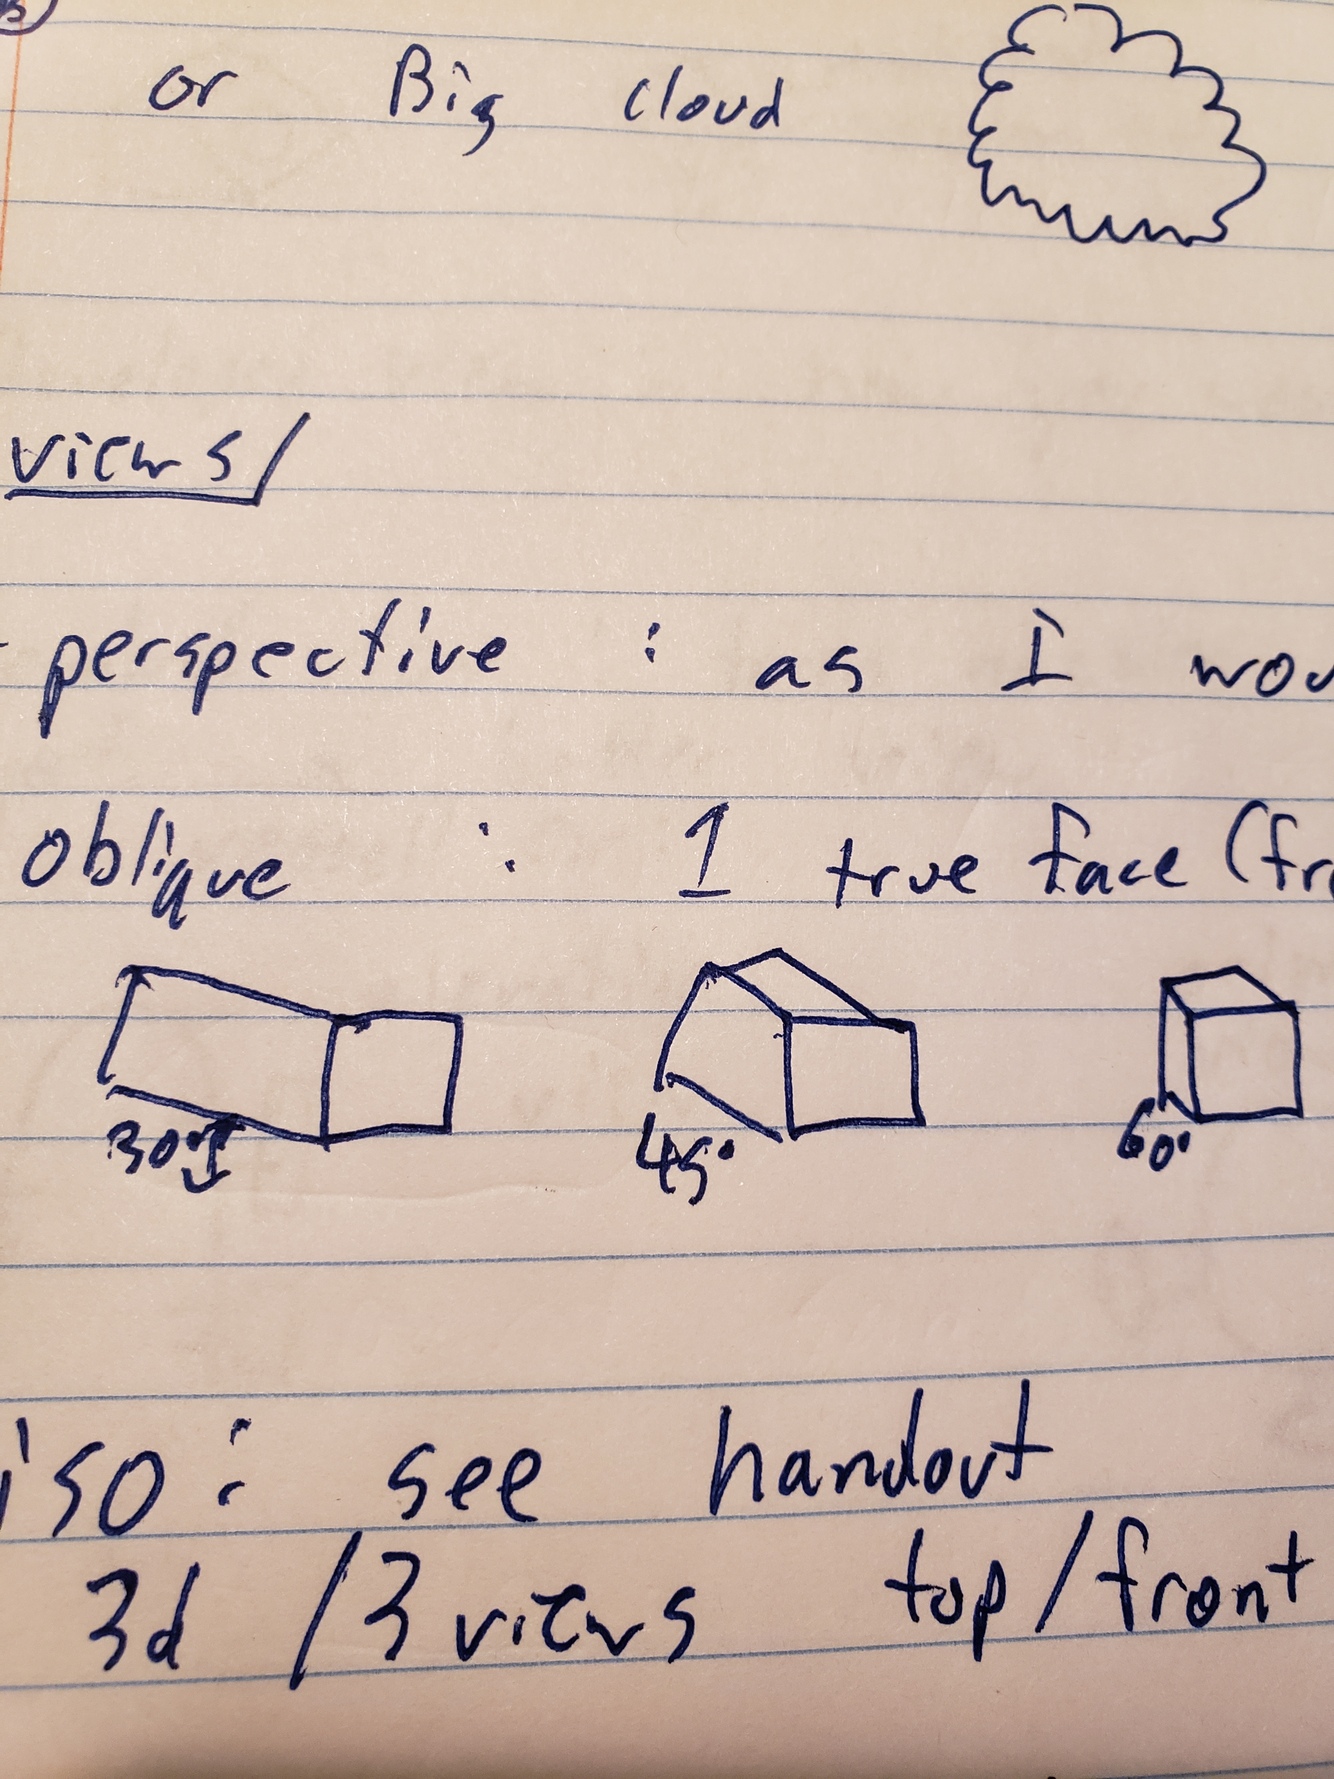 or Big cloud
views/
- perspective : as I wou
oblique : 1 true face (fro
30° 45° 60°
iso : see handout
3d / 3 views top/front